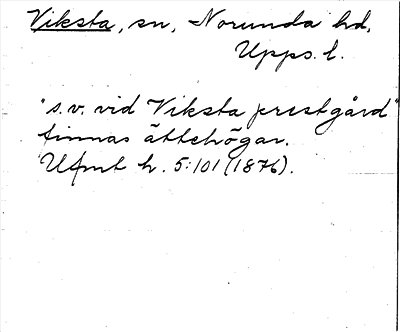 Viksta, sn, Norunda hd,
Upps. l.
"s.v. vid Viksta prestgård"
finnas ättehögar.
Ufmt h. 5:101 (1876).